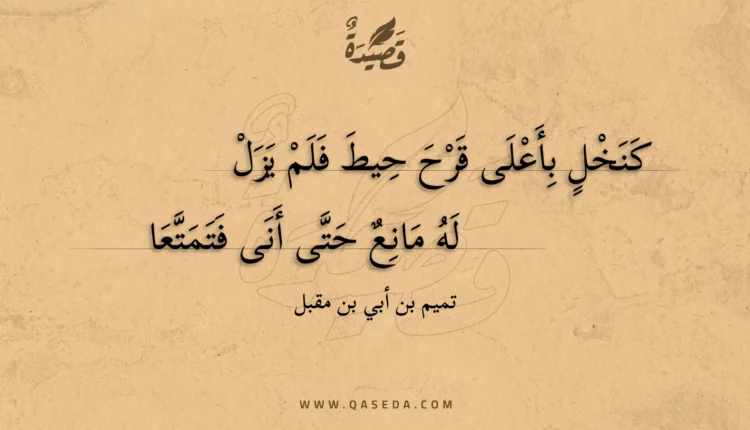 قَصِيدَةٌ
كَنَخْلٍ بِأَعْلَى قَرْحَ حِيطَ فَلَمْ يَزَلْ
لَهُ مَانِعٌ حَتَّى أَنَى فَتَمَتَّعَا
تميم بن أبي بن مقبل
WWW.QASEDA.COM